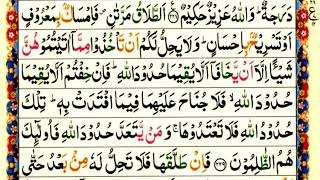 دَرَجَةٌ ؕ وَاللّٰهُ عَزِيْزٌ حَكِيْمٌ ﴿۲۲۸﴾ اَلطَّلَاقُ مَرَّتٰنِ ۪ فَاِمْسَاكٌۢ بِمَعْرُوْفٍ
اَوْ تَسْرِيْحٌۢ بِاِحْسَانٍ ؕ وَلَا يَحِلُّ لَكُمْ اَنْ تَاْخُذُوْا مِمَّاۤ اٰتَيْتُمُوْهُنَّ
شَيْـًٔا اِلَّاۤ اَنْ يَّخَافَاۤ اَلَّا يُقِيْمَا حُدُوْدَ اللّٰهِ ؕ فَاِنْ خِفْتُمْ اَلَّا يُقِيْمَا
حُدُوْدَ اللّٰهِ ۙ فَلَا جُنَاحَ عَلَيْهِمَا فِيْمَا افْتَدَتْ بِهٖ ؕ تِلْكَ
حُدُوْدُ اللّٰهِ فَلَا تَعْتَدُوْهَا ۚ وَمَنْ يَّتَعَدَّ حُدُوْدَ اللّٰهِ فَاُولٰٓئِكَ
هُمُ الظّٰلِمُوْنَ ﴿۲۲۹﴾ فَاِنْ طَلَّقَهَا فَلَا تَحِلُّ لَهٗ مِنْۢ بَعْدُ حَتّٰى